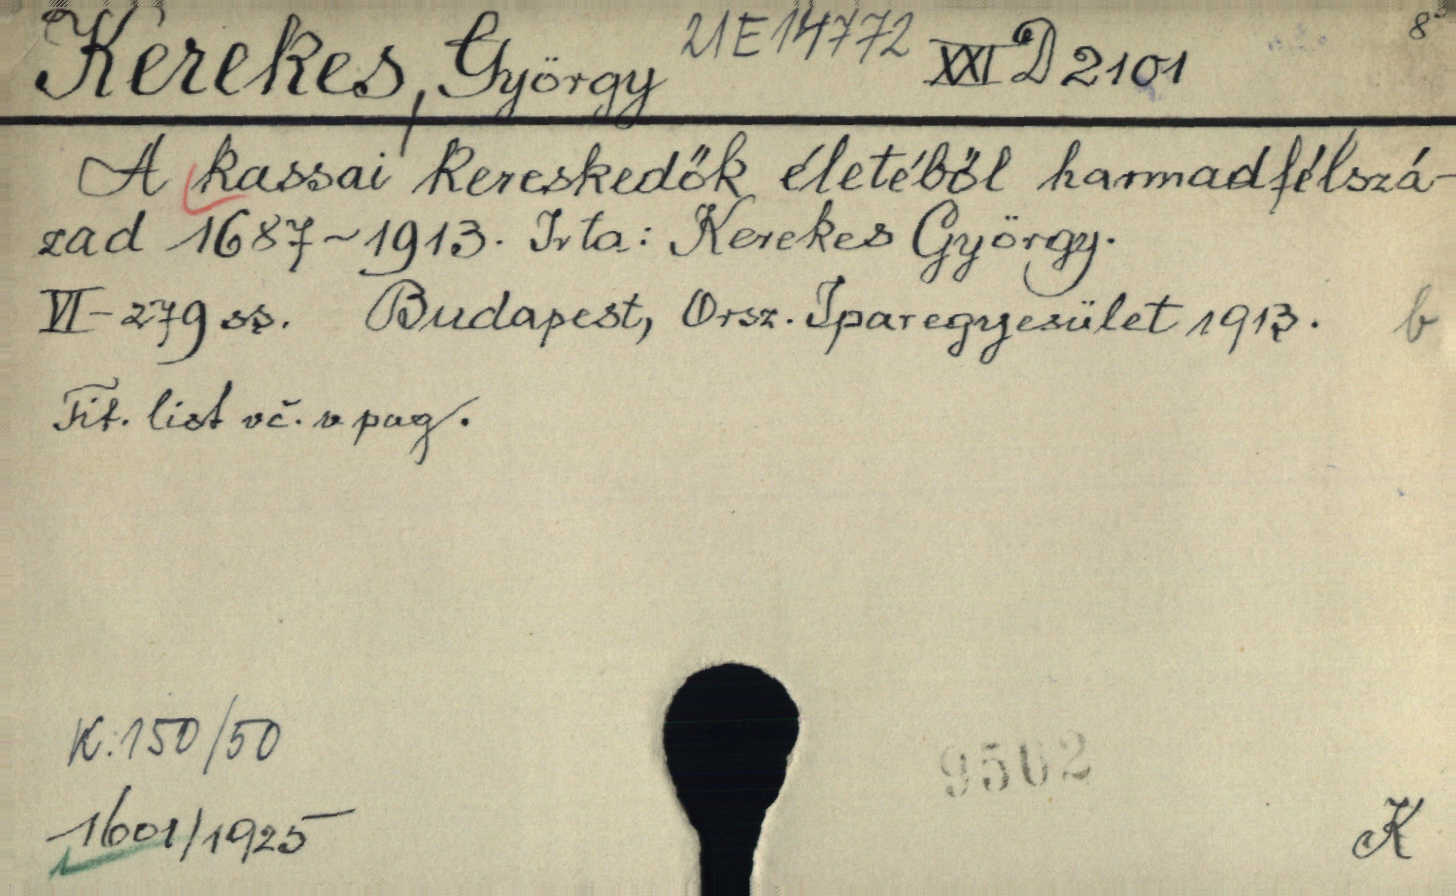 Kerekes, György 21E14772 XXI D 2101 8°
A kassai kereskedők életéből harmadfélszá-
zad 1687~1913. Irta: Kerekes György.
VI-279 ss. Budapest, Orsz. Iparegyesület 1913. b
Tit. list vč. v pag.
K.150/50
9502
1601/1925
K